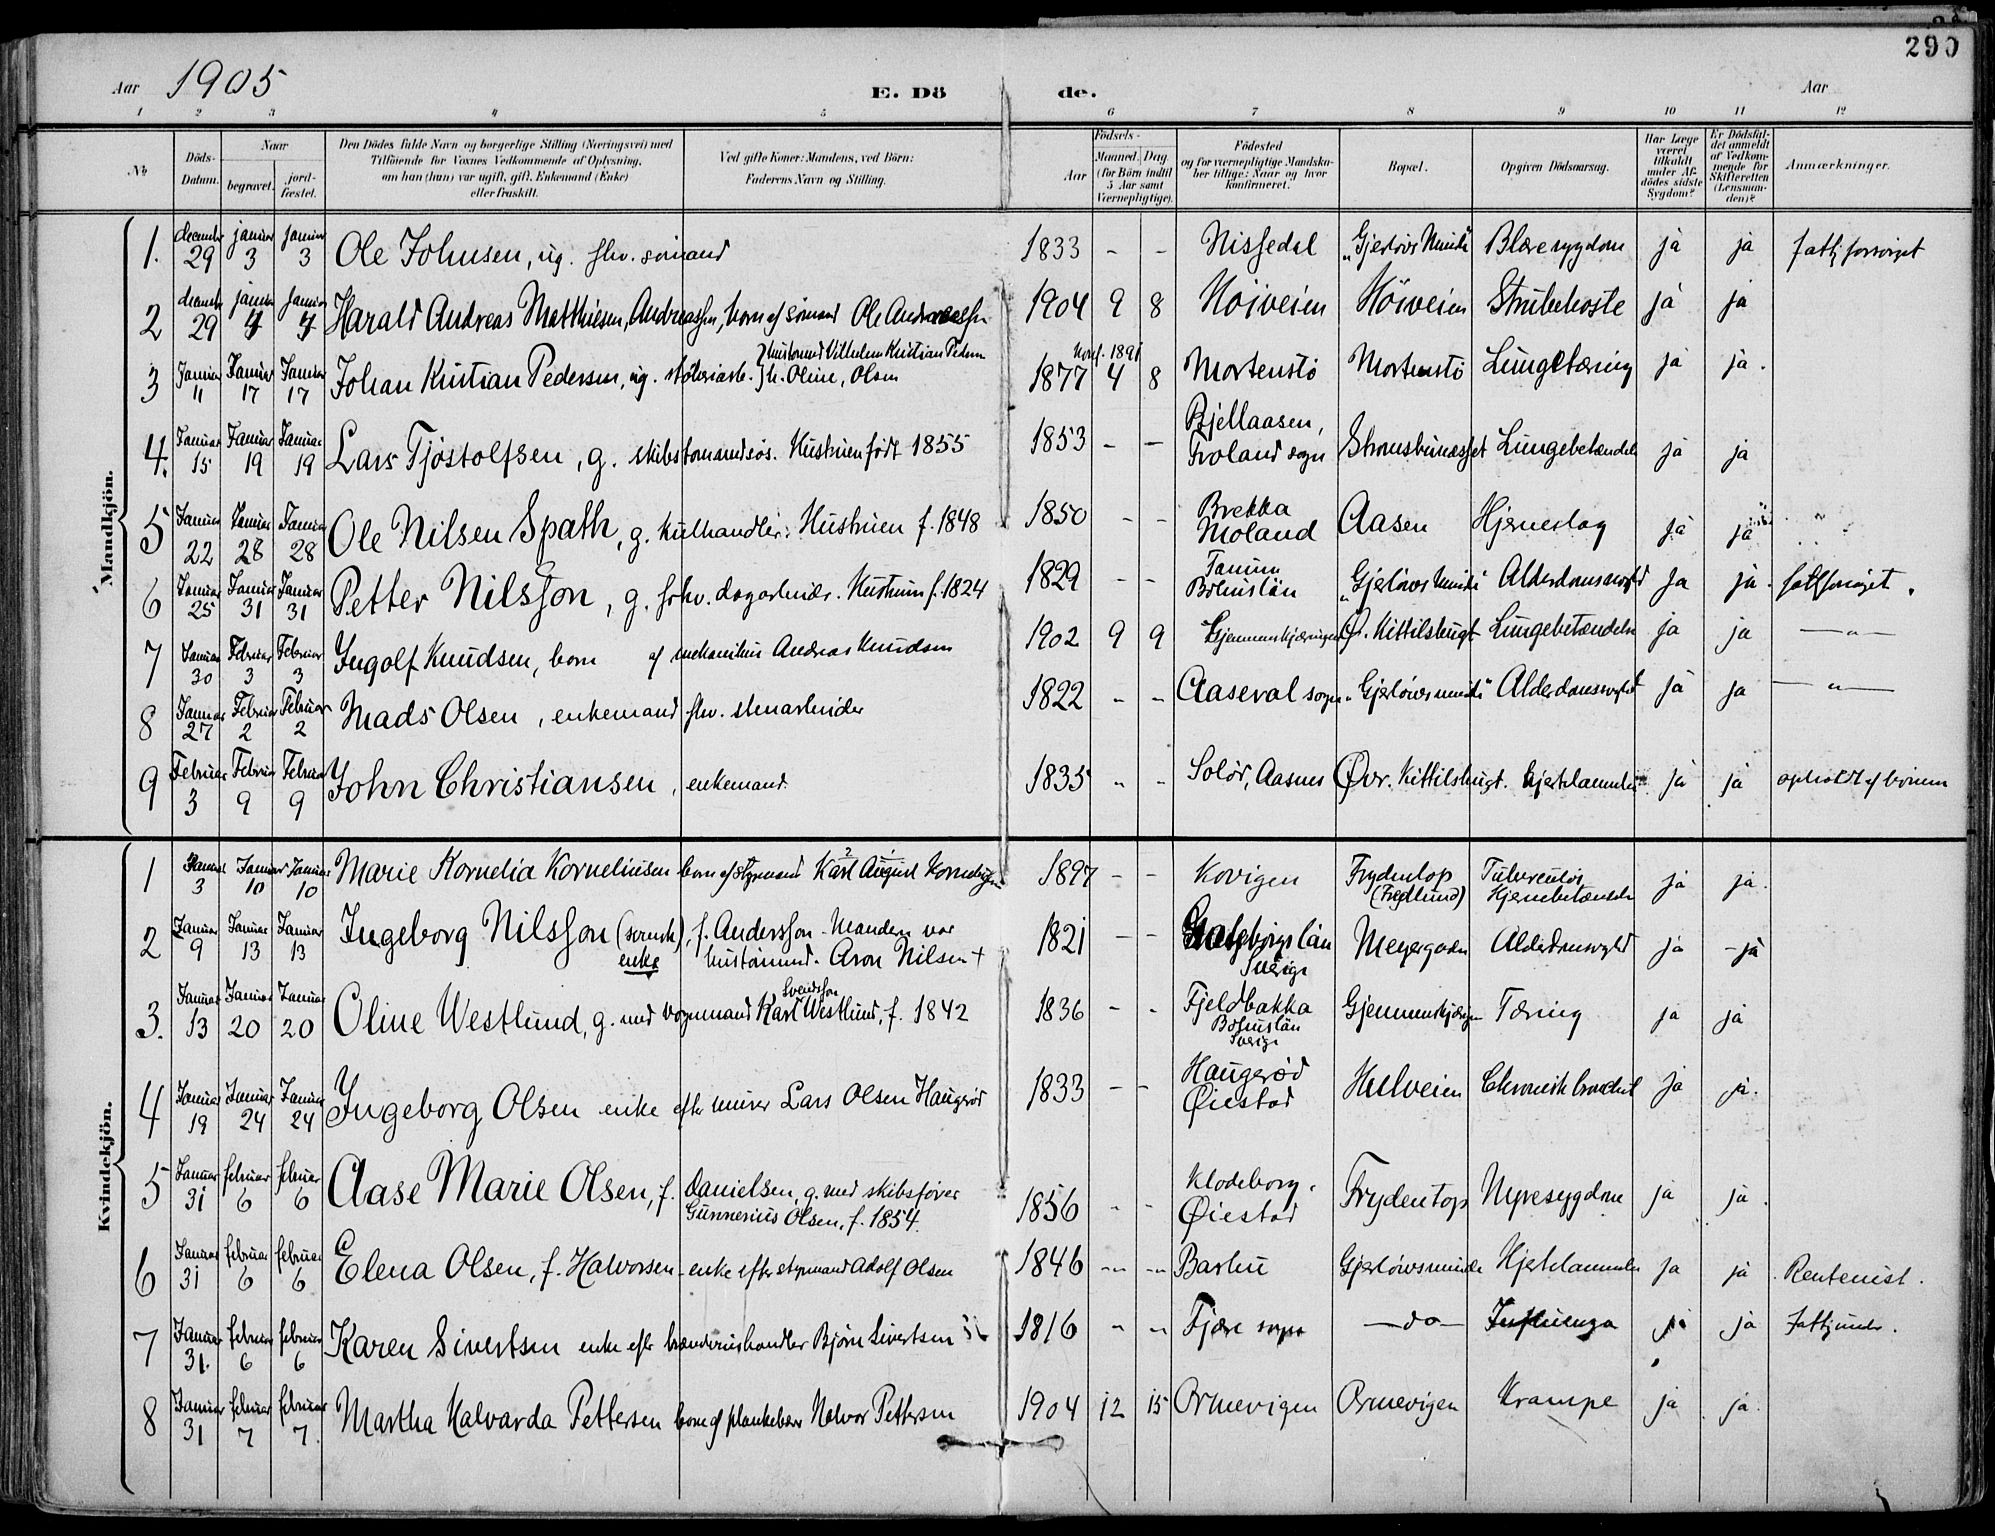 290
Aar 1905 E. Dö de. Aar
1 2 3 4 5 6 7 8 9 10 11 12
No
Döds-Datum.
Naar
begravet.
jord-fæstet.
Den Dödes fulde Navn og borgerlige Stilling (Næringsvei) med
Tilföiende for Voxnes Vedkommende af Oplysning,
om han (hun) var ugift, gift, Enkemand (Enke)
eller fraskilt.
Ved gifte Koner: Mandens, ved Börn:
Faderens Navn og Stilling.
Födsels-
Aar
Maaned. Dag
(for Börn indtil
5 Aar samt
Værnepligtige).
Födested
og for værnepligtige Mandska-
ber tillige: Naar og hvor
konfirmeret.
Bopæl.
Opgiven Dödsaarsag.
Har Læge
været
tilkaldt
under Af-
dödes sidste
Sygdom?
Er Dödsfal-
det anmeldt
af Vedkom-
mende for
Skifteretten
(Lensman-
den)?
Anmærkninger.
Mandkjön.
1. december 29 januar 3 januar 3 Ole Johnsen, ug. fhv. sömand 1833 - - Nissedal "Gjerlövs Minde" Blæresygdom ja ja fattigforsörget
2 december 29 januar 4 januar 4 Harald Andreas Matthiesen, Andreassen, barn af sömand Ole Andreassen 1904 9 8 Höiveien Höiveien Strubehoste ja ja
3 Januar 11 Januar 17 Januar 17 Johan Kristian Pedersen, ug. stöberiarb. } husmand Vilhelm Kristian Pedersen h. Oline, Olsen 1877 4 8 konf. 1891 Mortenstö Mortenstö Lungetæring ja ja.
4. Januar 15 Januar 19 Januar 19 Lars Tjöstolfsen, g. skibstömandsös. Hustruen födt 1855 1853 - - Bjellaasen, Froland sogn Strömsbunæsset Lungebetændelse ja ja
5 Januar 22 Januar 28 Januar 28 Ole Nilsen Spath, g. kulhandler: Hustruen f. 1848 1850 - - Brekka Moland Aasen Hjerneslag ja ja
6 Januar 25 Januar 31 Januar 31 Petter Nilsson, g. forhv. dagarbeider. Hustruen f. 1824 1829 - - Tanum Bohuslän "Gjerlövs Minde" Alderdomssvaghed ja ja. fattigforsörget.
7 Januar 30 Februar 3 Februar 3 Ingolf Knudsen, barn af mekanikus Andreas Knudsen 1902 9 9 Gjennemskjæringen Ø. Kittilsbugt Lungebetændelse ja ja — " —
8 Januar 27 Februar 2 Februar 2 Mads Olsen, enkemand fhv. stenarbeider 1822 - - Aaseral sogn "Gjerlöws minde" Alderdomssvaghed ja ja — " —
9 Februar 3 Februar 9 Februar 9 John Christiansen, enkemand. 1835 - - Solör, Aasnes Øvr. Kittilsbugt. Hjertelammelse ja ja opholdt af börnene
Kvindekjön.
1 Januar 3 Januar 10 Januar 10 Marie Kornelia Korneliusen barn af styrmand Karl August Korneliusen 1897 - - Kovigen Frydentop (Fredlund) Tuberculös Hjernebetændelse ja ja.
2 Januar 9 Januar 13 Januar 13 Ingeborg Nilsson (svensk), enke f. Andersson - Manden var hustömmermd. Aron Nilsen + 1821 - - Göteborgs län Sverige Meyergaden Alderdomssvaghed ja - ja
3. Januar 13 Januar 20 Januar 20 Oline Westlund, g. med vognmand Karl Svendsson Westlund, f. 1842 1836 - - Fjeldbakka Bohuslän Sverige Gjennemskjæringen Tæring ja ja
4 Januar 19 Januar 24 Januar 24 Ingeborg Olsen enke efter murer Lars Olsen Haugeröd 1833 - - Haugeröd Øiestad Hulveien Chronisk bronchit ja ja.
5 Januar 31 februar 6 februar 6 Aase Marie Olsen, f. Danielsen, g. med skibsförer Gunnerius Olsen, f. 1854. 1856 - - Klodeborg, Øiestad Frydentop Nyresygdom ja ja.
6 Januar 31 februar 6 februar 6 Elena Olsen, f. Halvorsen - enke efter styrmand Adolf Olsen 1846 - - Barbu Gjerlöwsminde Hjertelammelse ja ja. Rentenist.
7 Januar 31. februar 6 februar 6 Karen Sivertsen enke efter brændevinshandler Björn Sivertsen 1816 - - Fjære sogn — do — Influenza ja ja Fattigunder.
8 Januar 31 februar 7 februar 7. Martha Halvarda Pettersen barn af plankebærer Halvor Pettersen 1904 12 15 Ormevigen Ormevigen Krampe ja ja.